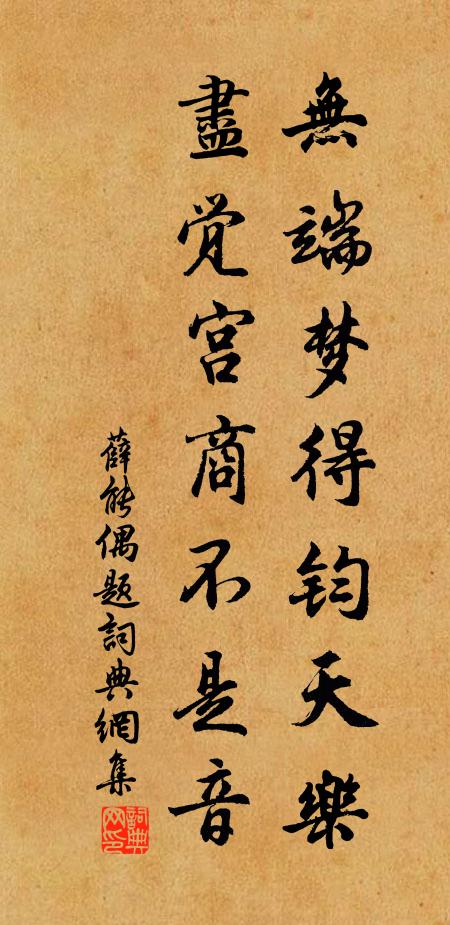 無端梦得钧天樂
盡覺宫商不是音
薛能偶题詞典網集
詞典网印